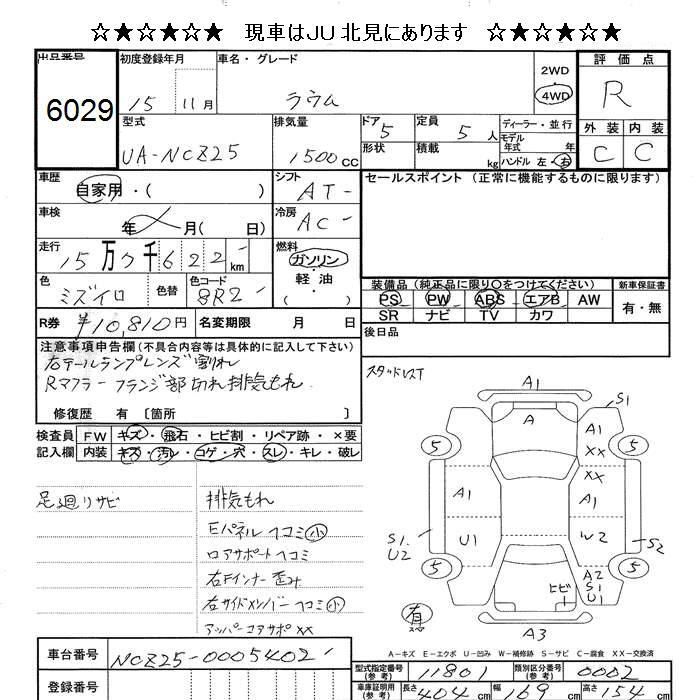 ☆★☆★☆★☆ 現車はJU北見にあります ☆★☆★☆★☆
出品番号 初度登録年月 車名・グレード 評価点
6029 15 11月 ラウム 2WD 4WD R
型式 排気量 ドア 定員 ディーラー・並行 外装 内装
UA-NCZ25 1500cc 5 5人 モデル年式 年 C C
形状 積載 kg ハンドル 左・右
車歴 自家用・( ) シフト AT- セールスポイント (正常に機能するものに限ります)
車検 年 月( 日) 冷房 AC-
走行 15万7千622 km 燃料 ガソリン・軽油 ( )
色 ミズイロ 色替 色コード 8R2-
装備品 (純正品に限り○をつけてください) 新車保証書
PS PW ABS エアB AW 有・無
SR ナビ TV カワ
R券 ¥10,810円 名変期限 月 日 後日品
注意事項申告欄(不具合内容等は具体的に記入して下さい)
右テールランプレンズ割れ
Rマフラーフランジ部切れ排気もれ
修復歴 有 〔箇所 〕
スタッドレスT
検査員 FW キズ・飛石・ヒビ割・リペア跡・×要
記入欄 内装 キズ・汚レ・コゲ・穴・スレ・キレ・破レ
足廻りサビ
排気もれ
Eパネルヘコミ小
ロアサポートヘコミ
右Fインナー歪み
右サイドメンバーヘコミ小
アッパーコアサポXX
A1
A
S1
A1
XX
5 5
XX
A1 A1
S1 U2
U1 W2
S2
5 5
A2 S1 U1
ヒビ
有
A3
A-キズ E-エクボ U-凹み W-補修跡 S-サビ C-腐食 XX-交換済
車台番号 NCZ25-0005402
型式指定番号(参考) 11801 類別区分番号(参考) 0002
登録番号 車庫証明用(参考) 長さ 404cm 幅 169cm 高さ 154cm